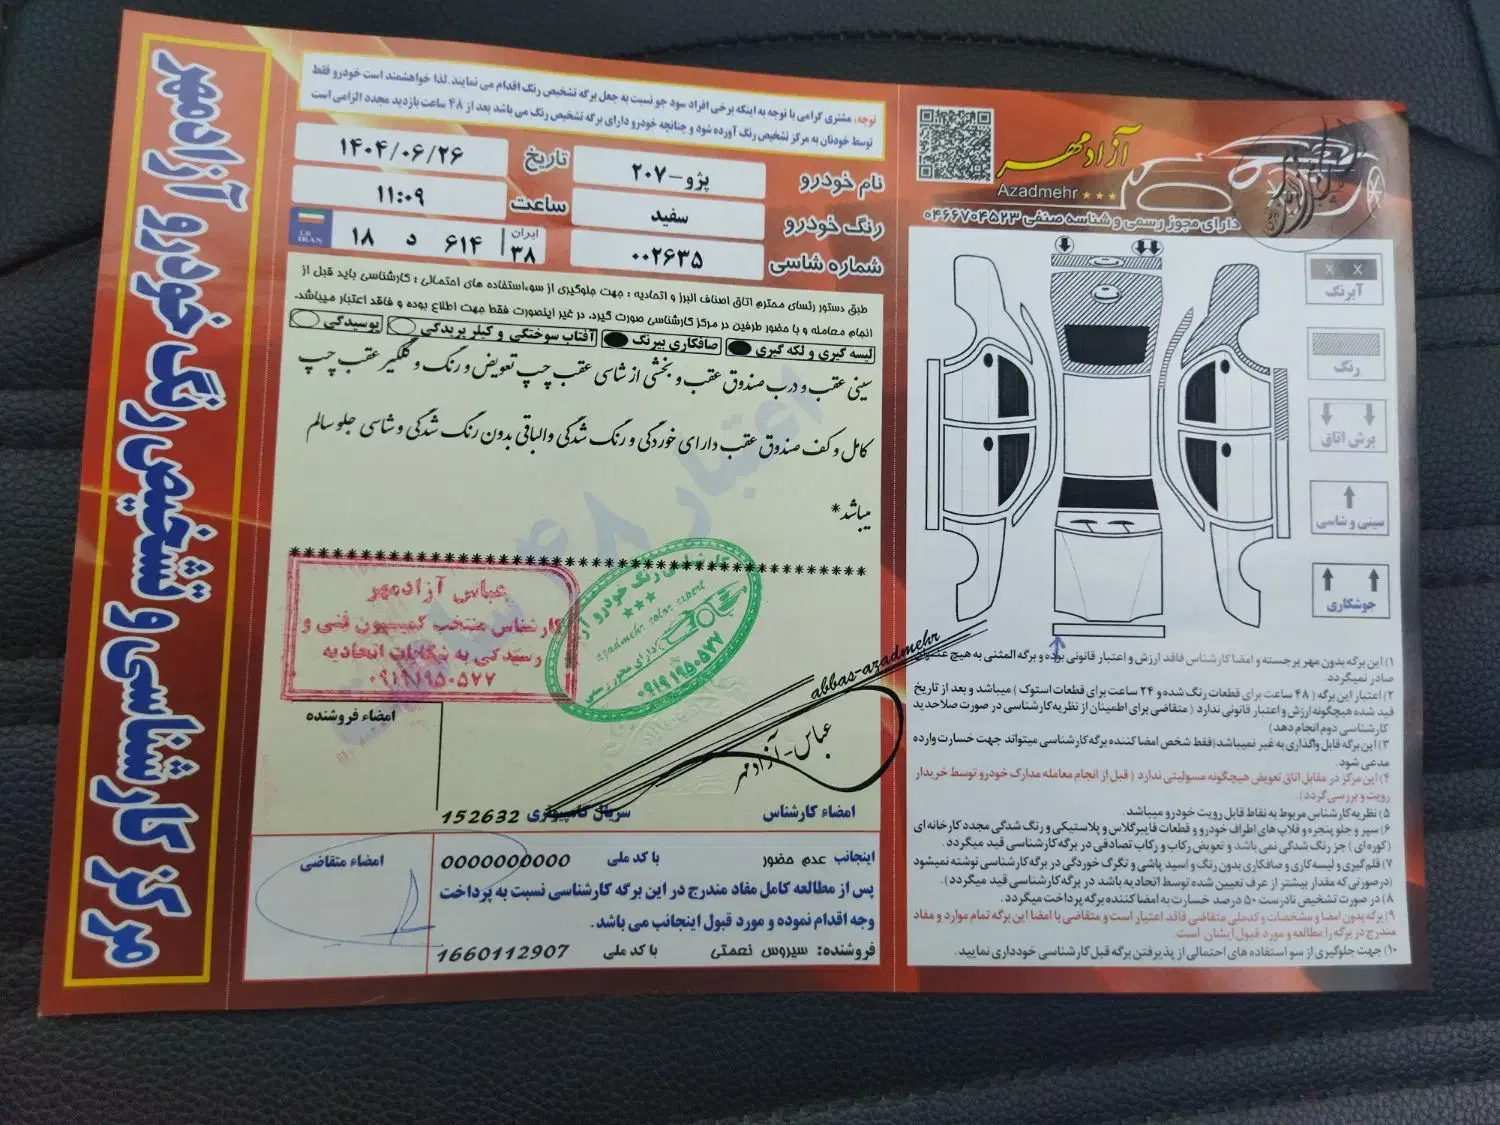 مرکز کارشناسی و تشخیص رنگ خودرو آزادمهر
توجه: مشتری گرامی با توجه به اینکه برخی افراد سود جو نسبت به جعل برگه تشخیص رنگ اقدام می نمایند. لذا خواهشمند است خودرو فقط
توسط خودتان به مرکز تشخیص رنگ آورده شود و چنانچه خودرو دارای برگه تشخیص رنگ می باشد بعد از ۴۸ ساعت بازدید مجدد الزامی است
نام خودرو پژو-۲۰۷ تاریخ ۱۴۰۴/۰۶/۲۶
رنگ خودرو سفید ساعت ۱۱:۰۹
شماره شاسی ۰۰۲۶۳۵ ایران ۳۸ ۶۱۴ د ۱۸
I.R.
IRAN
طبق دستور رئسای محترم اتاق اصناف البرز و اتحادیه : جهت جلوگیری از سوءاستفاده های احتمالی : کارشناسی باید قبل از
انجام معامله و با حضور طرفین در مرکز کارشناسی صورت گیرد. در غیر اینصورت فقط جهت اطلاع بوده و فاقد اعتبار میباشد.
لیسه گیری و لکه گیری صافکاری بیرنگ آفتاب سوختگی و کیلر پریدگی پوسیدگی
سینی عقب و درب صندوق عقب و بخشی از شاسی عقب چپ تعویض و رنگ و گلگیر عقب چپ
کامل و کف صندوق عقب دارای خوردگی و رنگ شدگی والباقی بدون رنگ شدگی و شاسی جلو سالم
میباشد*
اعتبار ۴۸ ساعت
عباس آزادمهر
کارشناس منتخب کمیسیون فنی و
رسیدگی به شکایات اتحادیه
۰۹۱۹۱۹۵۰۵۷۷
کارشناسی رنگ خودرو آزادمهر
azadmehr color expert
دارای مجوز رسمی
۰۹۱۹۱۹۵۰۵۷۷
abbas-azadmehr
عباس-آزادمهر
امضاء فروشنده
امضاء کارشناس
سریال کامپیوتری 152632
اینجانب عدم حضور با کد ملی 0000000000
امضاء متقاضی
پس از مطالعه کامل مفاد مندرج در این برگه کارشناسی نسبت به پرداخت
وجه اقدام نموده و مورد قبول اینجانب می باشد.
فروشنده: سیروس نعمتی با کد ملی 1660112907
آزادمهر
Azadmehr
دارای مجوز رسمی و شناسه صنفی ۰۴۶۶۷۰۴۵۲۳
X X
آبرنگ
رنگ
برش اتاق
سینی و شاسی
جوشکاری
۱) این برگه بدون مهر برجسته و امضا کارشناس فاقد ارزش و اعتبار قانونی بوده و برگه المثنی به هیچ عنوان
صادر نمیگردد.
۲) اعتبار این برگه ( ۴۸ ساعت برای قطعات رنگ شده و ۲۴ ساعت برای قطعات استوک ) میباشد و بعد از تاریخ
قید شده هیچگونه ارزش و اعتبار قانونی ندارد ( متقاضی برای اطمینان از نظریه کارشناسی در صورت صلاحدید
کارشناسی دوم انجام دهد)
۳) این برگه قابل واگذاری به غیر نمیباشد(فقط شخص امضا کننده برگه کارشناسی میتواند جهت خسارت وارده
مدعی شود.
۴) این مرکز در مقابل اتاق تعویض هیچگونه مسولیتی ندارد ( قبل از انجام معامله مدارک خودرو توسط خریدار
رویت و بررسی گردد).
۵) نظریه کارشناس مربوط به نقاط قابل رویت خودرو میباشد.
۶) سپر و جلو پنجره و فلاپ های اطراف خودرو و قطعات فایبرگلاس و پلاستیکی و رنگ شدگی مجدد کارخانه ای
(کوره ای) جز رنگ شدگی نمی باشد و تعویض رکاب و رکاب تصادفی در برگه کارشناسی قید میگردد.
۷) قلم گیری و لیسه کاری و صافکاری بدون رنگ و اسید پاشی و تگرگ خوردگی در برگه کارشناسی نوشته نمیشود
(درصورتی که مقدار بیشتر از عرف تعیین شده توسط اتحادیه باشد در برگه کارشناسی قید میگردد).
۸) در صورت تشخیص نادرست ۵۰ درصد خسارت به امضا کننده برگه پرداخت میگردد.
۹) برگه بدون امضا و مشخصات و کدملی متقاضی فاقد اعتبار است و متقاضی با امضا این برگه تمام موارد و مفاد
مندرج در برگه را مطالعه و مورد قبول ایشان است.
۱۰) جهت جلوگیری از سو استفاده های احتمالی از پذیرفتن برگه قبل کارشناسی خودداری نمایید.